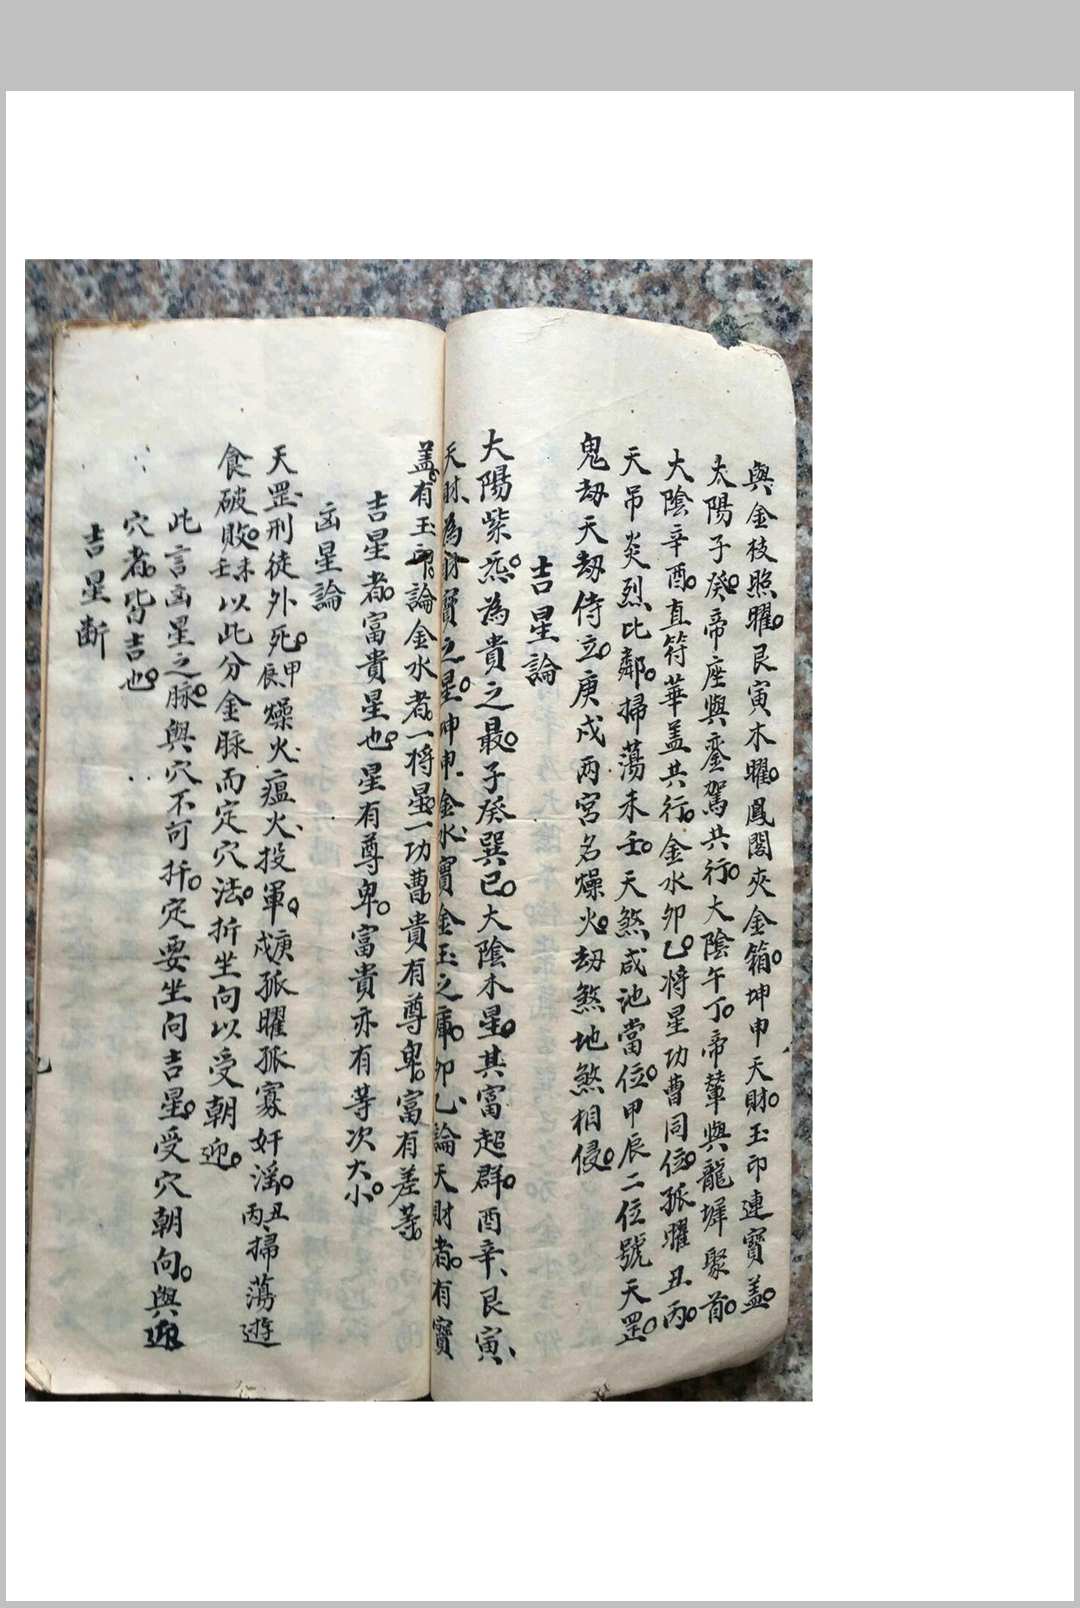 與金枝照曜。艮寅木曜。鳳閣夾金箱。坤申天財。玉印連寶盖。
太陽子癸。帝座與鑾駕共行。大陰午丁。帝輦與龍墀聚首。
大陰辛酉。直符華盖共行。金水卯乙。将星功曹同位。孤曜丑丙。
天吊炎烈比鄰。掃蕩未壬。天煞咸池當位。甲辰二位號天罡。
鬼刼天刼侍立。庚戍两宫名燥火。刼煞地煞相侵。
吉星論
大陽紫炁。為貴之最。子癸巽巳。大陰木星。其富超群。酉辛、艮寅、
天財、為財寶之星。坤申、金水、寶金玉之庫。卯乙、論天財者。有寶
盖。有玉印。論金水者。一将星。一功曹。貴有尊卑。富有差等。
吉星者。富貴星也。星有尊卑。富貴亦有等次大小。
凶星論
天罡、刑徒外死。甲辰燥火、瘟火、投軍。庚戍孤曜孤寡奸滛。丑丙、掃蕩遊
食破敗。未壬以此分金脉而定穴法。折坐向以受朝迎。
此言凶星之脉。與穴不可扦。定要坐向吉星。受穴朝向。與迎
穴者。皆吉也。
吉星断